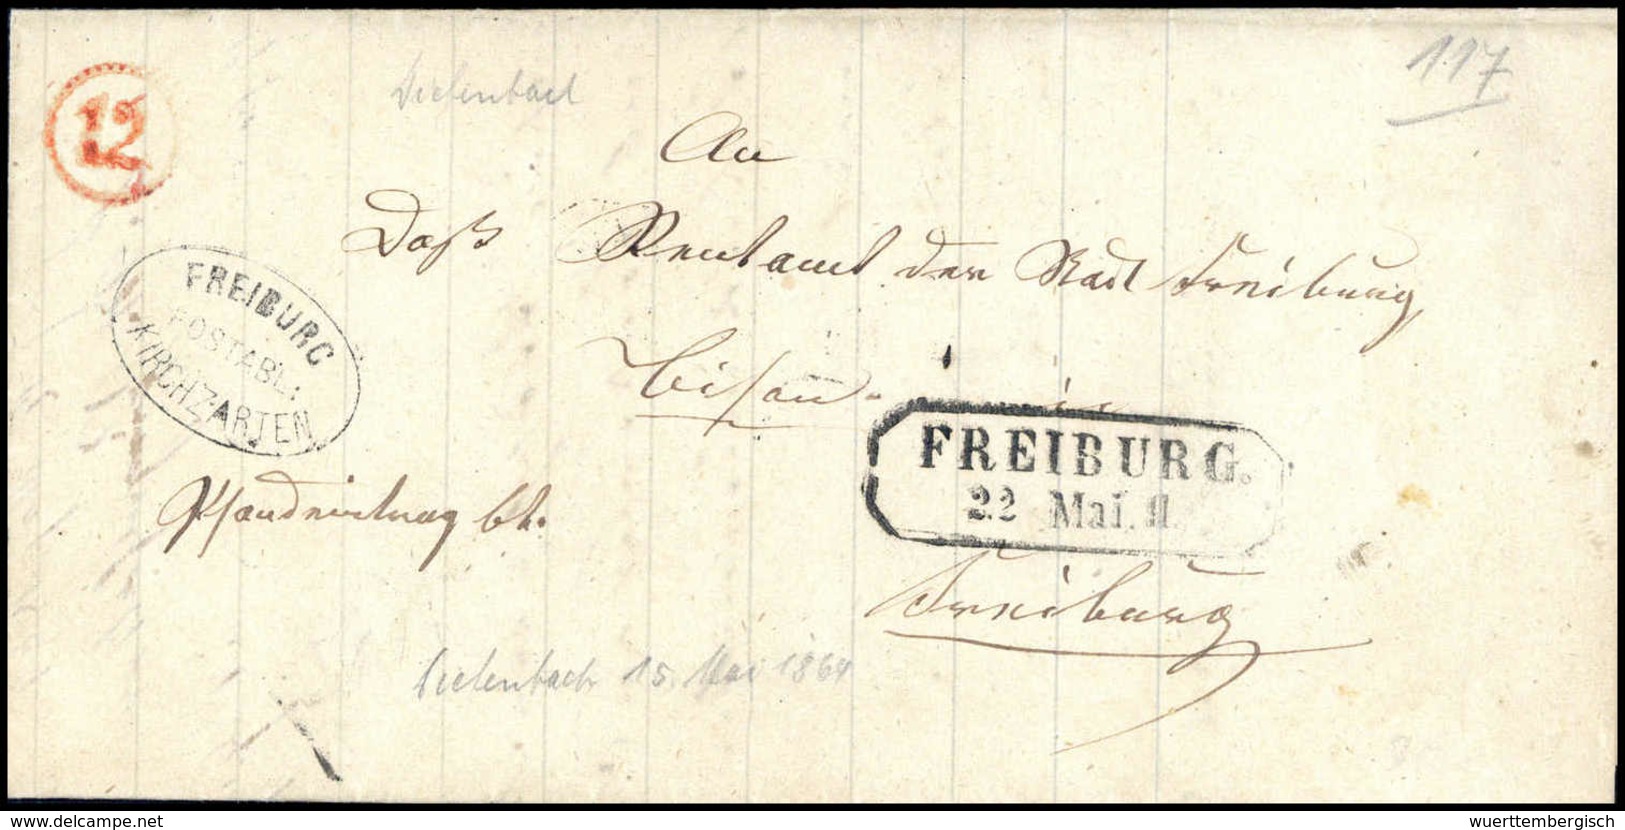 117
12
Dietenbach
An
Daß Rentamt der Stadt Freiburg
FREIBURG
POSTABL.
KIRCHZARTEN
FREIBURG.
22 Mai. II.
Pfandeintrag btr.
Freiburg
Dietenbach 15. Mai 1864
www.delcampe.net
wuerttembergisch